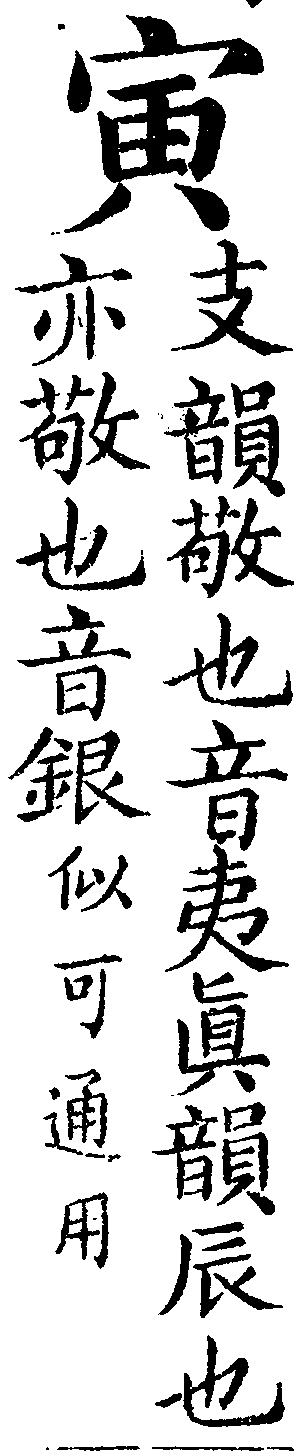 寅
支韻敬也音夷眞韻辰也
亦敬也音銀似可通用